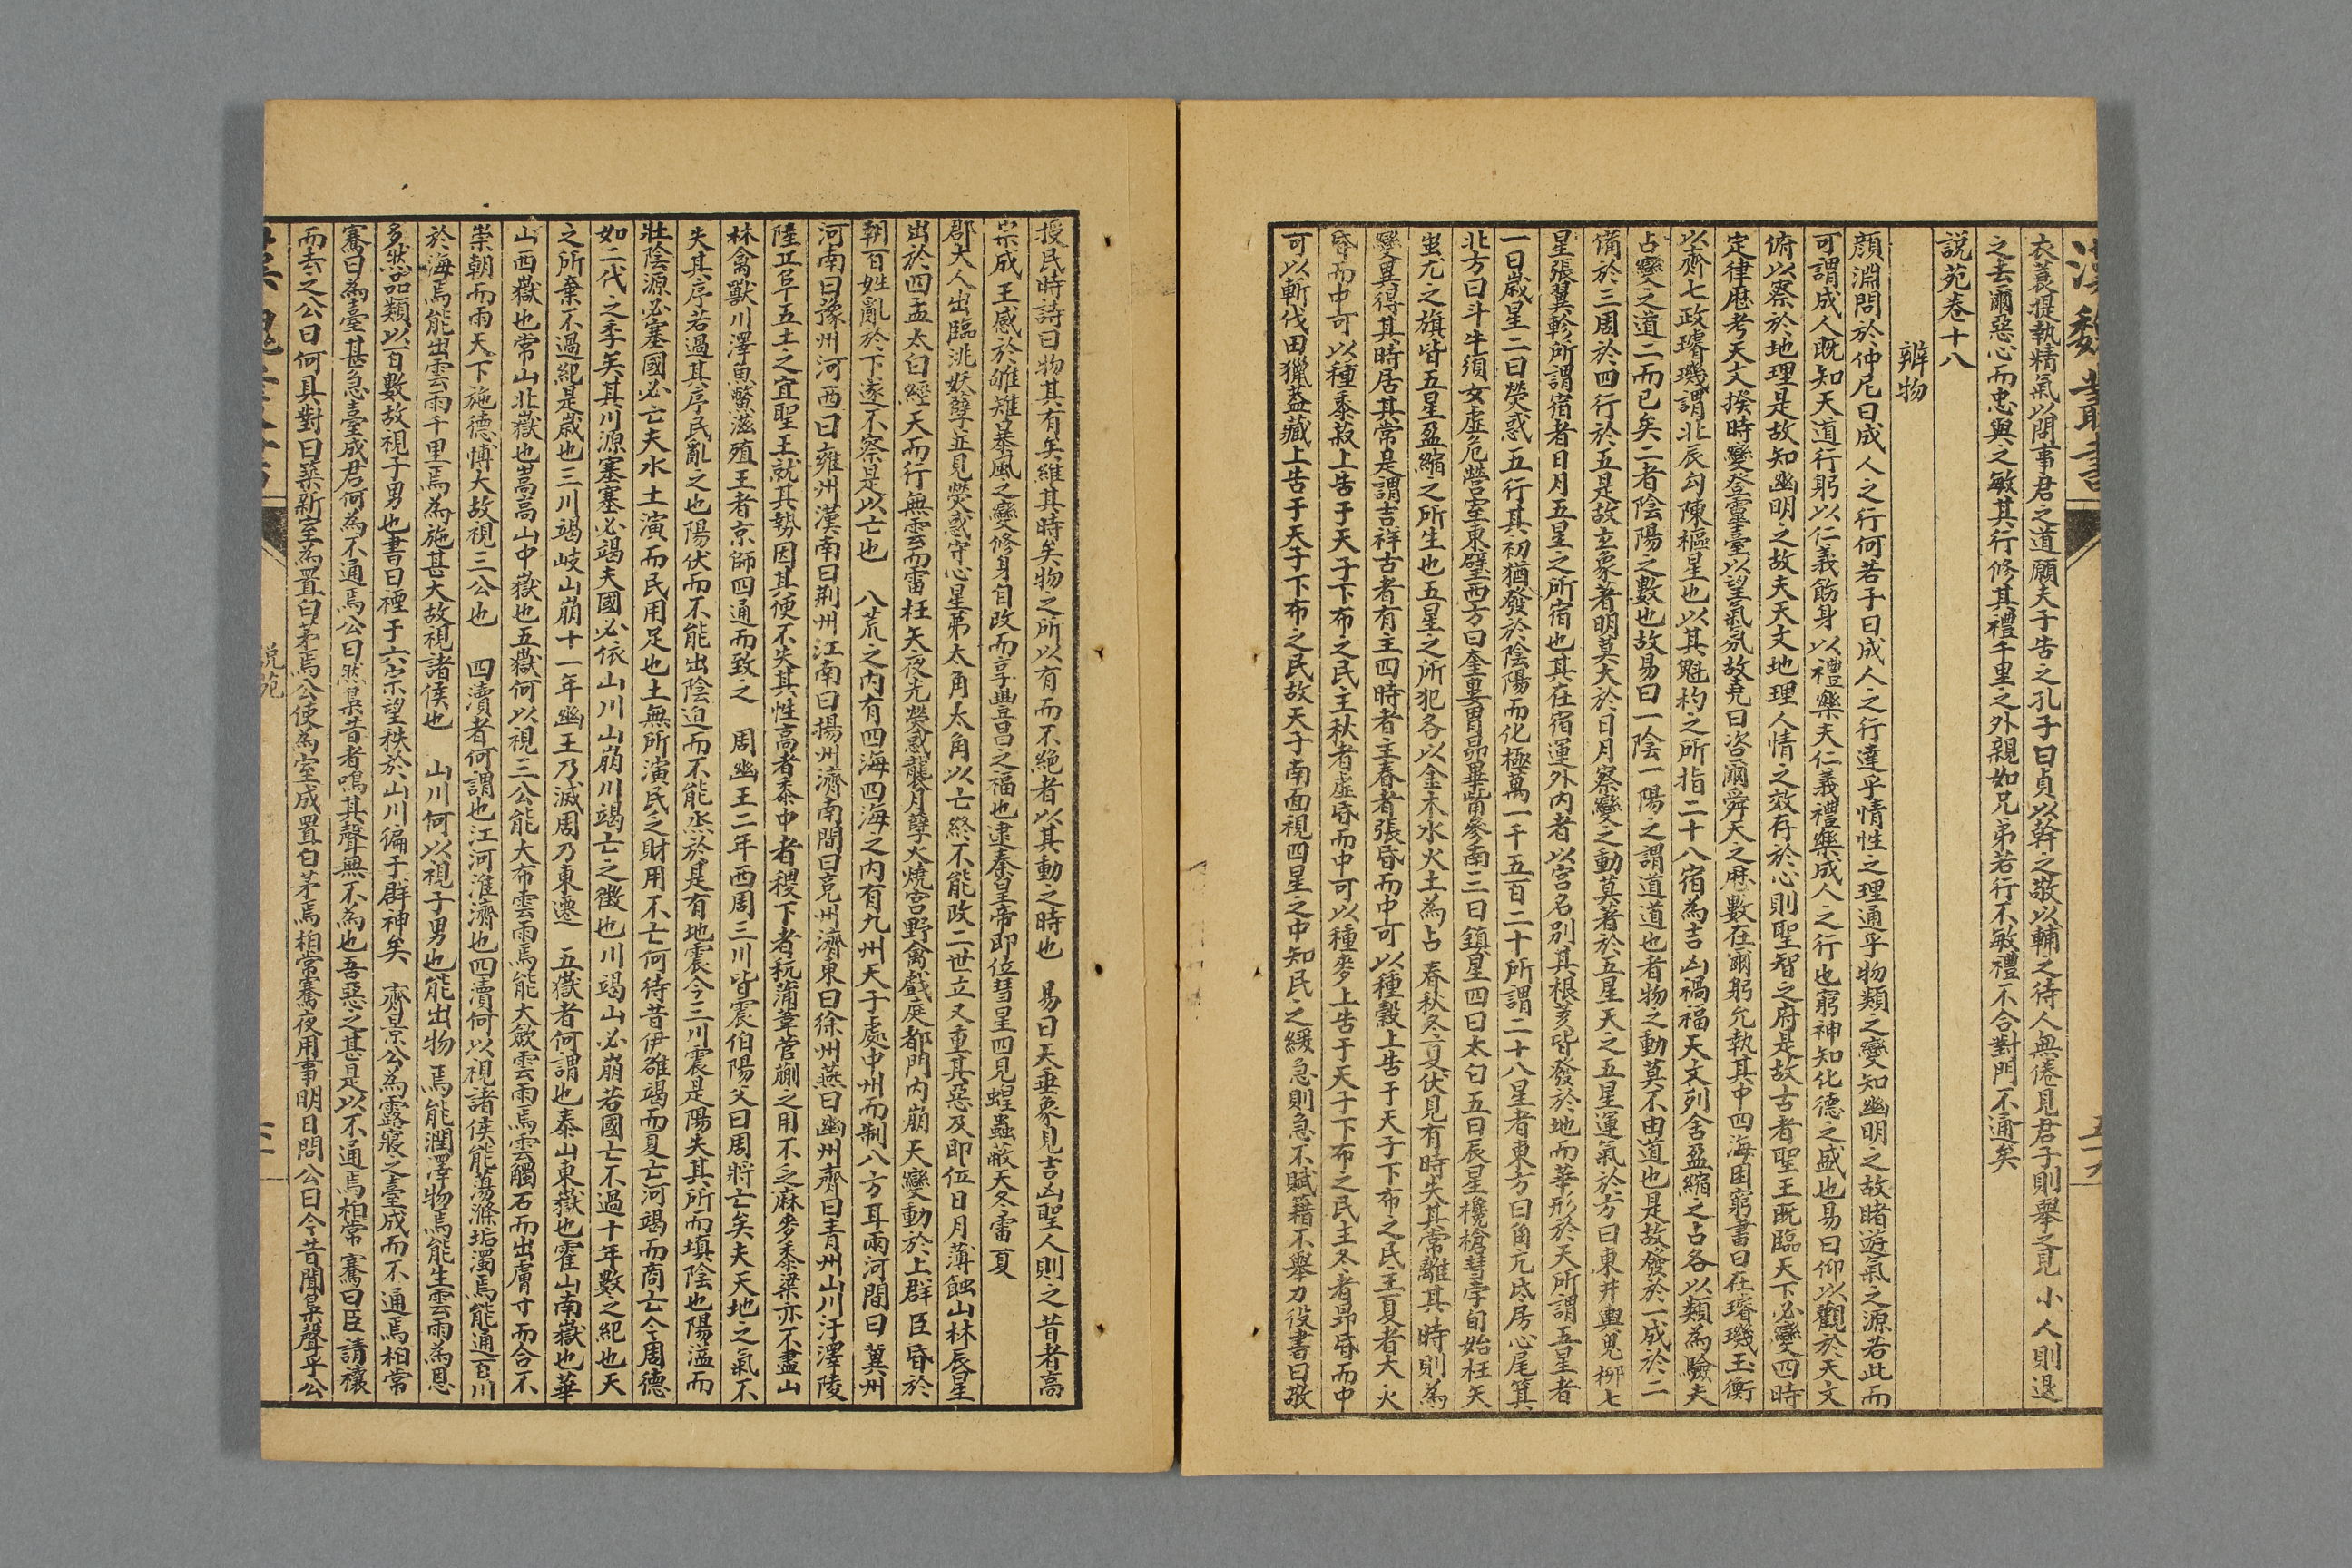 衣蓑提執精氣以問事君之道願夫子告之孔子曰貞以幹之敬以輔之待人無倦見君子則舉之見小人則退
之去爾惡心而忠與之敏其行修其禮千里之外親如兄弟若行不敏禮不合對門不通矣
說苑卷十八
辨物
顏淵問於仲尼曰成人之行何若子曰成人之行達乎情性之理通乎物類之變知幽明之故睹遊氣之源若此而
可謂成人既知天道行躬以仁義飭身以禮樂夫仁義禮樂成人之行也窮神知化德之盛也易曰仰以觀於天文
俯以察於地理是故知幽明之故夫天文地理人情之效存於心則聖智之府是故古者聖王既臨天下必變四時
定律歷考天文揆時變登靈臺以望氣氛故堯曰咨爾舜天之歷數在爾躬允執其中四海困窮書曰在璿璣玉衡
以齊七政璿璣謂北辰勾陳樞星也以其魁杓之所指二十八宿為吉凶禍福天文列舍盈縮之占各以類為驗夫
占變之道二而已矣二者陰陽之數也故易曰一陰一陽之謂道道也者物之動莫不由道也是故發於一成於二
備於三周於四行於五是故玄象著明莫大於日月察變之動莫著於五星天之五星運氣於
星張翼軫所謂宿者日月五星之所宿也其在宿運外內者以宮名別其根荄皆發於地而華形於天所謂五星者
一曰歲星二曰熒惑五行其初猶發於陰陽而化極萬一千五百二十所謂二十八星者東方曰角亢氐房心尾箕
北方曰斗牛須女虛危營室東壁西方曰奎婁胃昴畢觜參南三曰鎮星四曰太白五曰辰星欃槍彗孛旬始枉矢
蚩尤之旗皆五星盈縮之所生也五星之所犯各以金木水火土為占春秋冬夏伏見有時失其常離其時則為
變異得其時居其常是謂吉祥古者有主四時者主春者張昏而中可以種穀上告于天子下布之民主夏者大火
昏而中可以種黍菽上告于天子下布之民主秋者虛昏而中可以種麥上告于天子下布之民主冬者昴昏而中
可以斬伐田獵蓋藏上告于天子下布之民故天子南面視四星之中知民之緩急急則不賦籍不舉力役書曰敬
授民時詩曰物其有矣維其時矣物之所以有而不絕者以其動之時也　易曰天垂象見吉凶聖人則之昔者高
宗成王感於雊雉暴風之變修身自改而享豐昌之福也逮秦皇帝即位彗星四見蝗蟲蔽天冬雷夏
郡大人出臨洮妖孽並見熒惑守心星茀太角太角以亡終不能改二世立又重其惡及即位日月薄蝕山林辰星
出於四孟太白經天而行無雲而雷枉矢夜光熒惑襲月孽火燒宮野禽戲庭都門內崩天變動於上群臣昏於
朝百姓亂於下遂不察是以亡也　八荒之內有四海四海之內有九州天子處中州而制八方耳兩河間曰冀州
河南曰豫州河西曰雍州漢南曰荊州江南曰揚州濟南間曰兗州濟東曰徐州燕曰幽州齊曰青州山川汙澤陵
陸丘阜五土之宜聖王就其勢因其便不失其性高者黍中者稷下者秔蒲葦菅蒯之用不乏麻麥黍粱亦不盡山
林禽獸川澤魚鱉滋殖王者京師四通而致之　周幽王二年西周三川皆震伯陽父曰周將亡矣夫天地之氣不
失其序若過其序民亂之也陽伏而不能出陰迫而不能烝於是有地震今三川震是陽失其所而填陰也陽溢而
壯陰源必塞國必亡夫水土演而民用足也土無所演民乏財用不亡何待昔伊雒竭而夏亡河竭而商亡今周德
如二代之季矣其川源塞塞必竭夫國必依山川山崩川竭亡之徵也川竭山必崩若國亡不過十年數之紀也天
之所棄不過紀是歲也三川竭岐山崩十一年幽王乃滅周乃東遷　五嶽者何謂也泰山東嶽也霍山南嶽也華
山西嶽也常山北嶽也嵩高山中嶽也五嶽何以視三公能大布雲雨焉能大斂雲雨焉雲觸石而出膚寸而合不
崇朝而雨天下施德博大故視三公也　四瀆者何謂也江河淮濟也四瀆何以視諸侯能蕩滌垢濁焉能通百川
於海焉能出雲雨千里焉為施甚大故視諸侯也　山川何以視子男也能出物焉能潤澤物焉能生雲雨為恩
多然品類以百數故視子男也書曰禋于六宗望秩於山川徧于群神矣　齊景公為露寢之臺成而不通焉柏常
騫曰為臺甚急臺成君何為不通焉公曰然梟昔者鳴其聲無不為也吾惡之甚是以不通焉柏常騫曰臣請禳
而去之公曰何具對曰築新室為置白茅焉公使為室成置白茅焉柏常騫夜用事明日問公曰今昔聞梟聲乎公
說苑